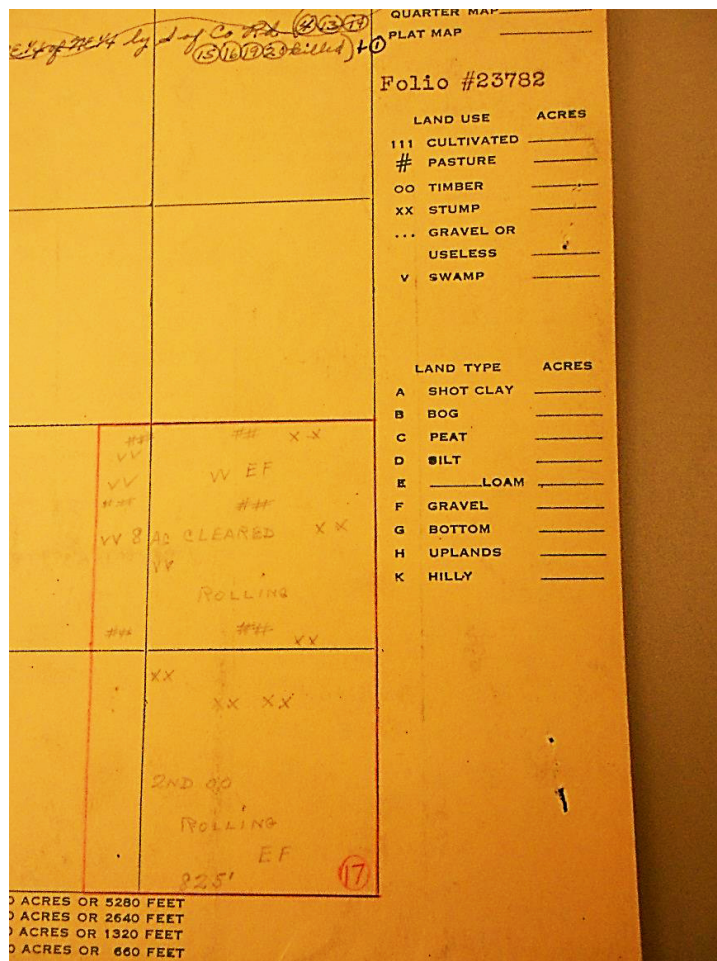 QUARTER MAP
NE¼ of NE¼ by S of Co Rd (4 13 14
PLAT MAP
15 16 19 20 Killed) + 1
Folio #23782
LAND USE ACRES
111 CULTIVATED
# PASTURE
oo TIMBER
xx STUMP
... GRAVEL OR
USELESS
V SWAMP
LAND TYPE ACRES
A SHOT CLAY
B BOG
C PEAT
D SILT
E LOAM
F GRAVEL
G BOTTOM
H UPLANDS
K HILLY
## ## X X
VV
VV VV EF
## ##
VV 8 AC CLEARED X X
VV
ROLLING
## ## XX
XX
XX XX
2ND OO
ROLLING
EF
825' 17
0 ACRES OR 5280 FEET
0 ACRES OR 2640 FEET
0 ACRES OR 1320 FEET
0 ACRES OR 660 FEET